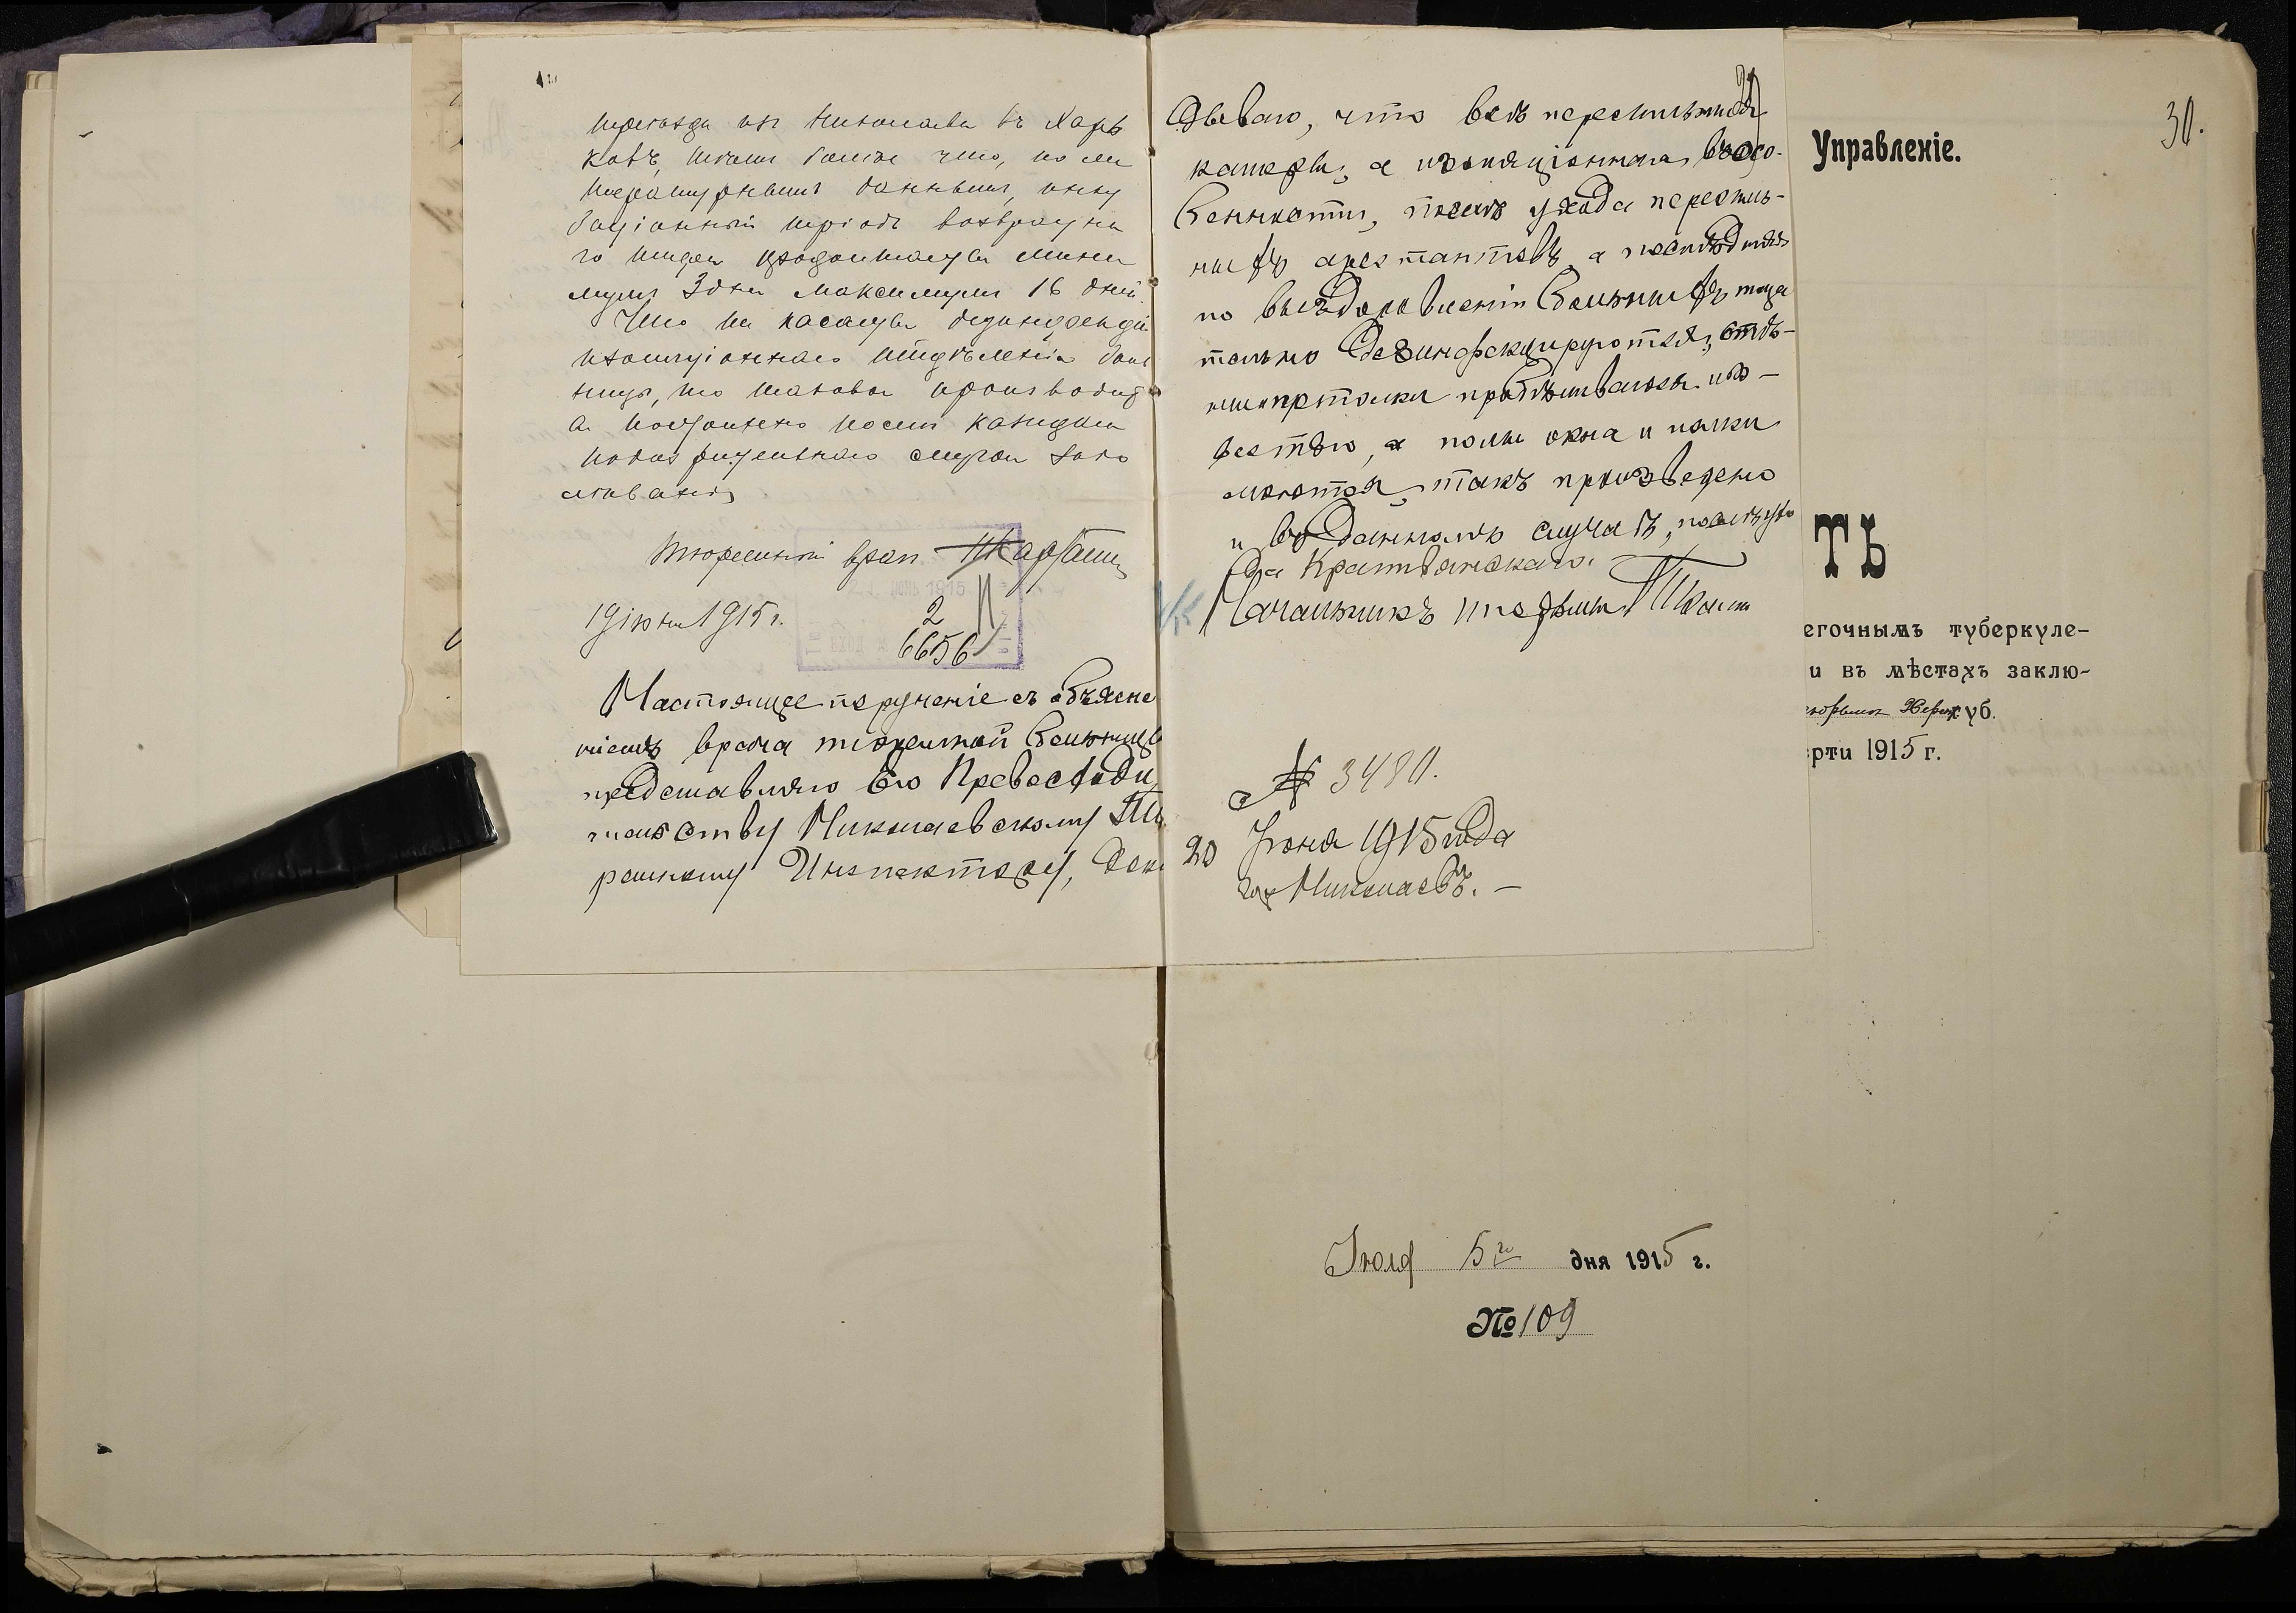 переѣзда изъ Николаева въ Харь
ковъ, тѣмъ болѣе что, по ли
тературнымъ даннымъ, инку
баціонный періодъ возвратна
го тифа продолжается мини
мумъ 3 дня максимумъ 16 дней.
Что же касается дезинфекціи
изоляціоннаго отдѣленія боль
ницы, то таковая производит
ся постоянно послѣ каждаго
подозрительнаго случая забо
лѣванія
Тюремный врач
19 іюня 1915 г.
2
6656
Настоящее порученіе съ объясне
ніемъ врача тюремной больницы
представляю Его Превосходи
тельству Николаевскому Тю
ремному Инспектору, док
31
дываю, что всѣ пересыльныя
камеры, а изоляціонная въ осо-
бенности, послѣ ухода пересыль-
ныхъ арестантовъ, а послѣдняя
по выздоровленіи больныхъ тща
тельно дезинфекцируются, стѣ-
ны и потолки пробѣливаются из-
вестью, а полы окна и
моются, такъ произведено
и въ данномъ случаѣ, послѣ ухо
да
Начальникъ тюрьмы
№ 3480.
20 Іюня 1915 года
гор Николаевъ. —
30.
Управленіе.
ТЬ
егочнымъ туберкуле-
и въ мѣстахъ заклю-
Херс губ.
рти 1915 г.
Іюля 5го дня 1915 г.
№ 109